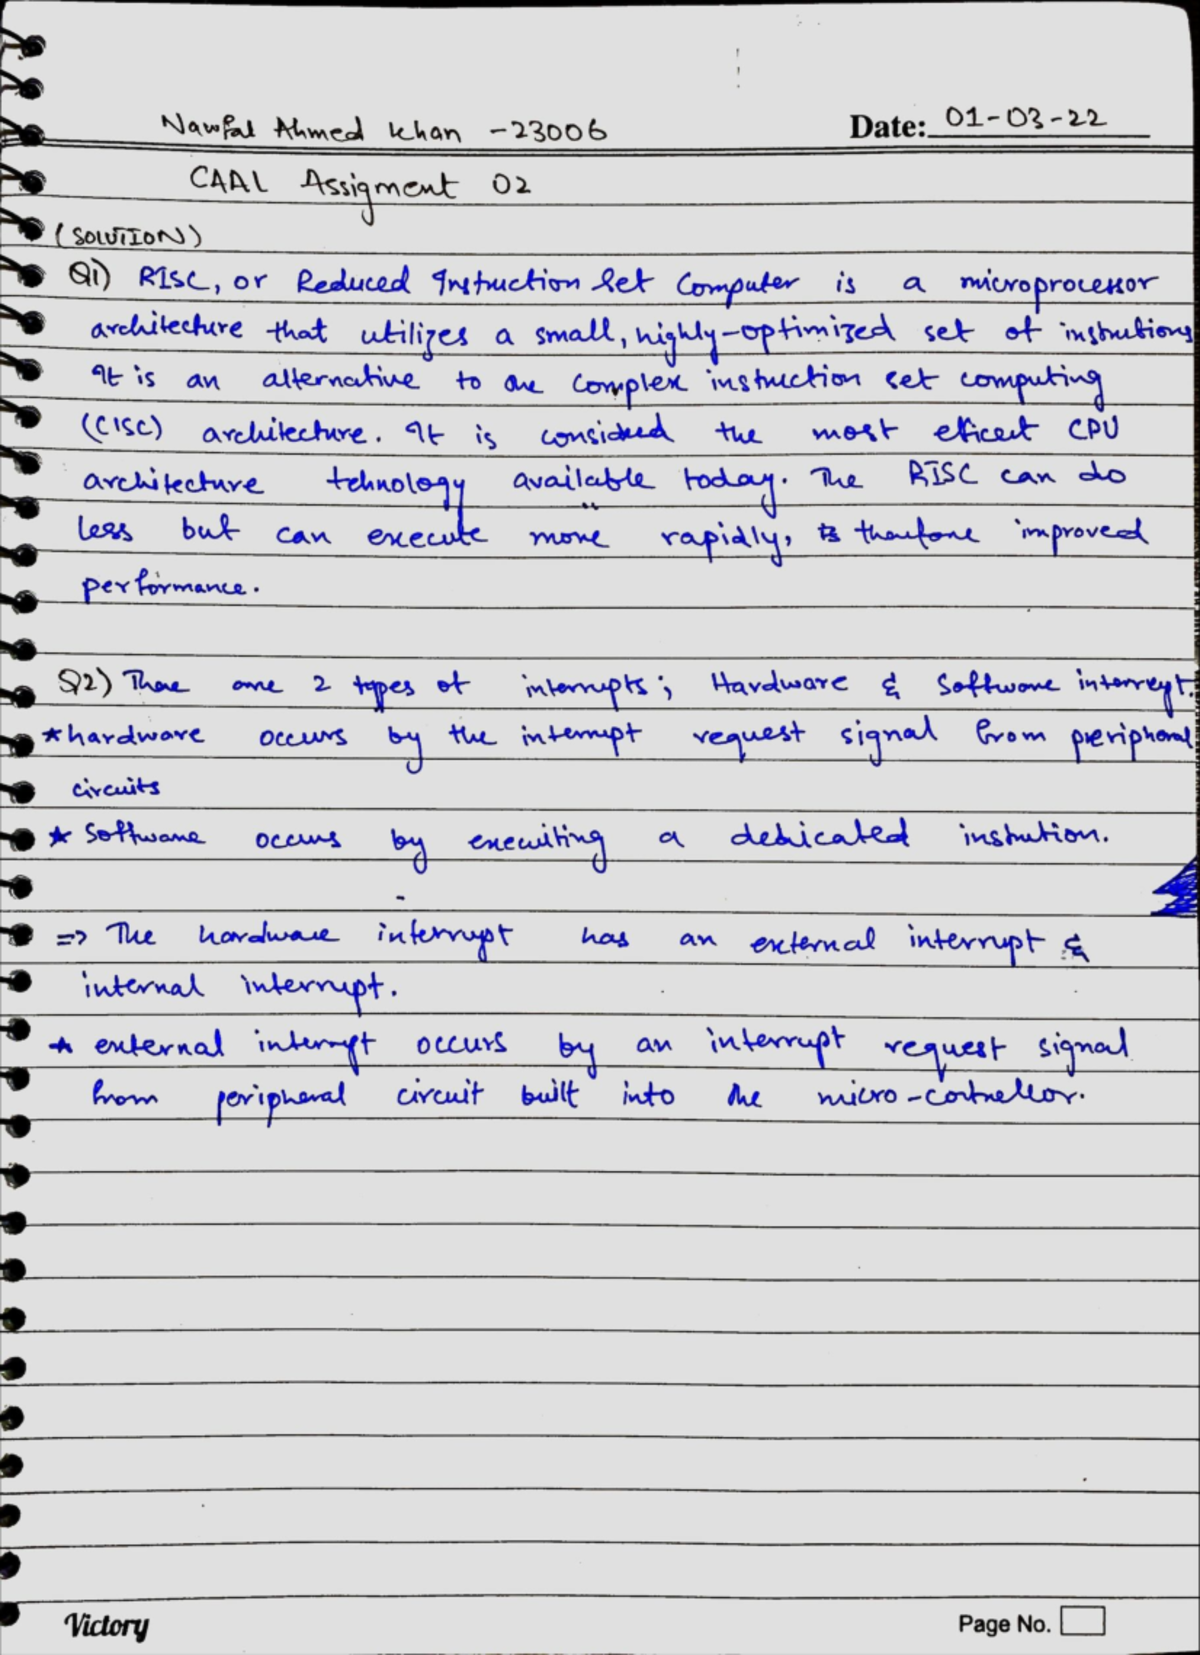 Nawfal Ahmed Khan -23006
Date: 01-03-22
CAAL Assigment 02
(SOLUTION)
Q1) RISC, or Reduced Instruction Set Computer is a microprocessor
architecture that utilizes a small, highly-optimized set of instrutions
It is an alternative to the complex instruction set computing
(CISC) architecture. It is considred the most eficent CPU
architecture tehnology available today. The RISC can do
less but can execute more rapidly, therefore improved
performance.
Q2) There are 2 types of interrupts; Hardware & Software interrupt.
* hardware occurs by the interrupt request signal from preripheral
circuits
* Software occurs by execuiting a dedicated instrution.
=> The hardware interrupt has an external interrupt &
internal interrupt.
* external interrupt occurs by an interrupt request signal
from peripheral circuit built into the micro-contrellor.
Victory
Page No.